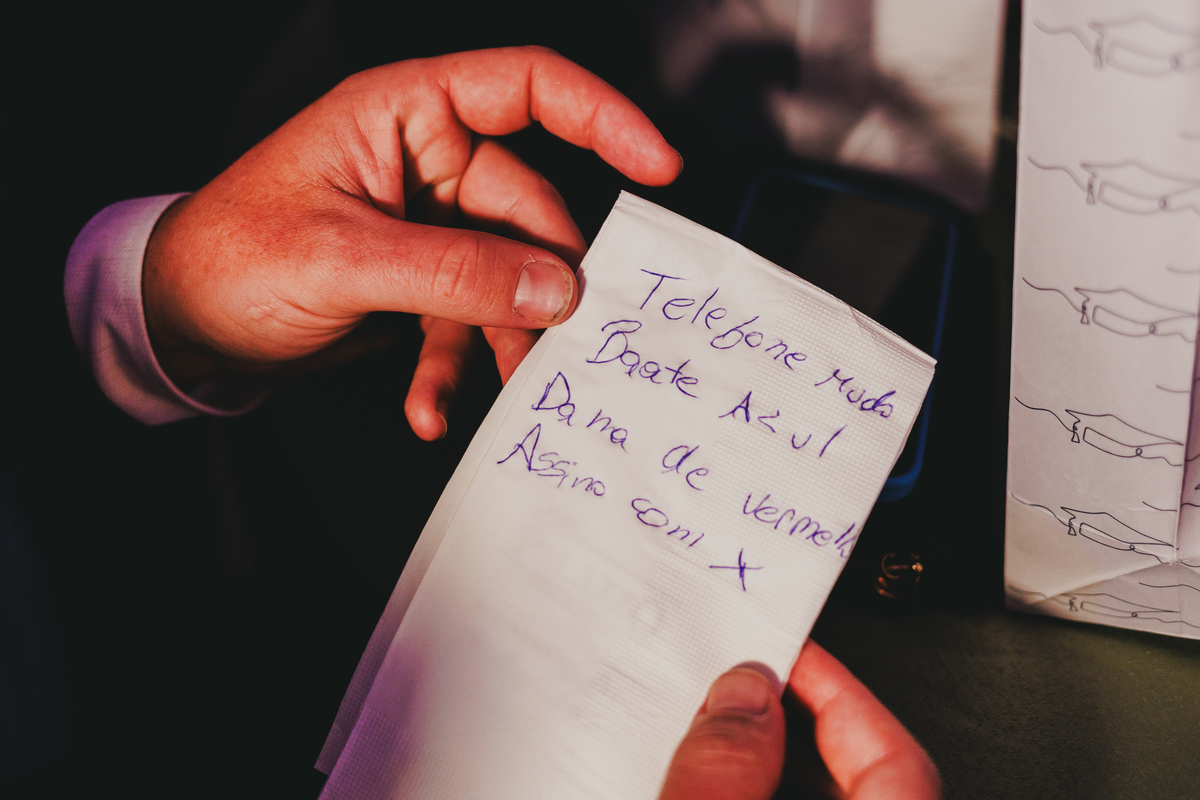 Telefone mudo
Boate Azul
Dama de vermelho
Assino com X